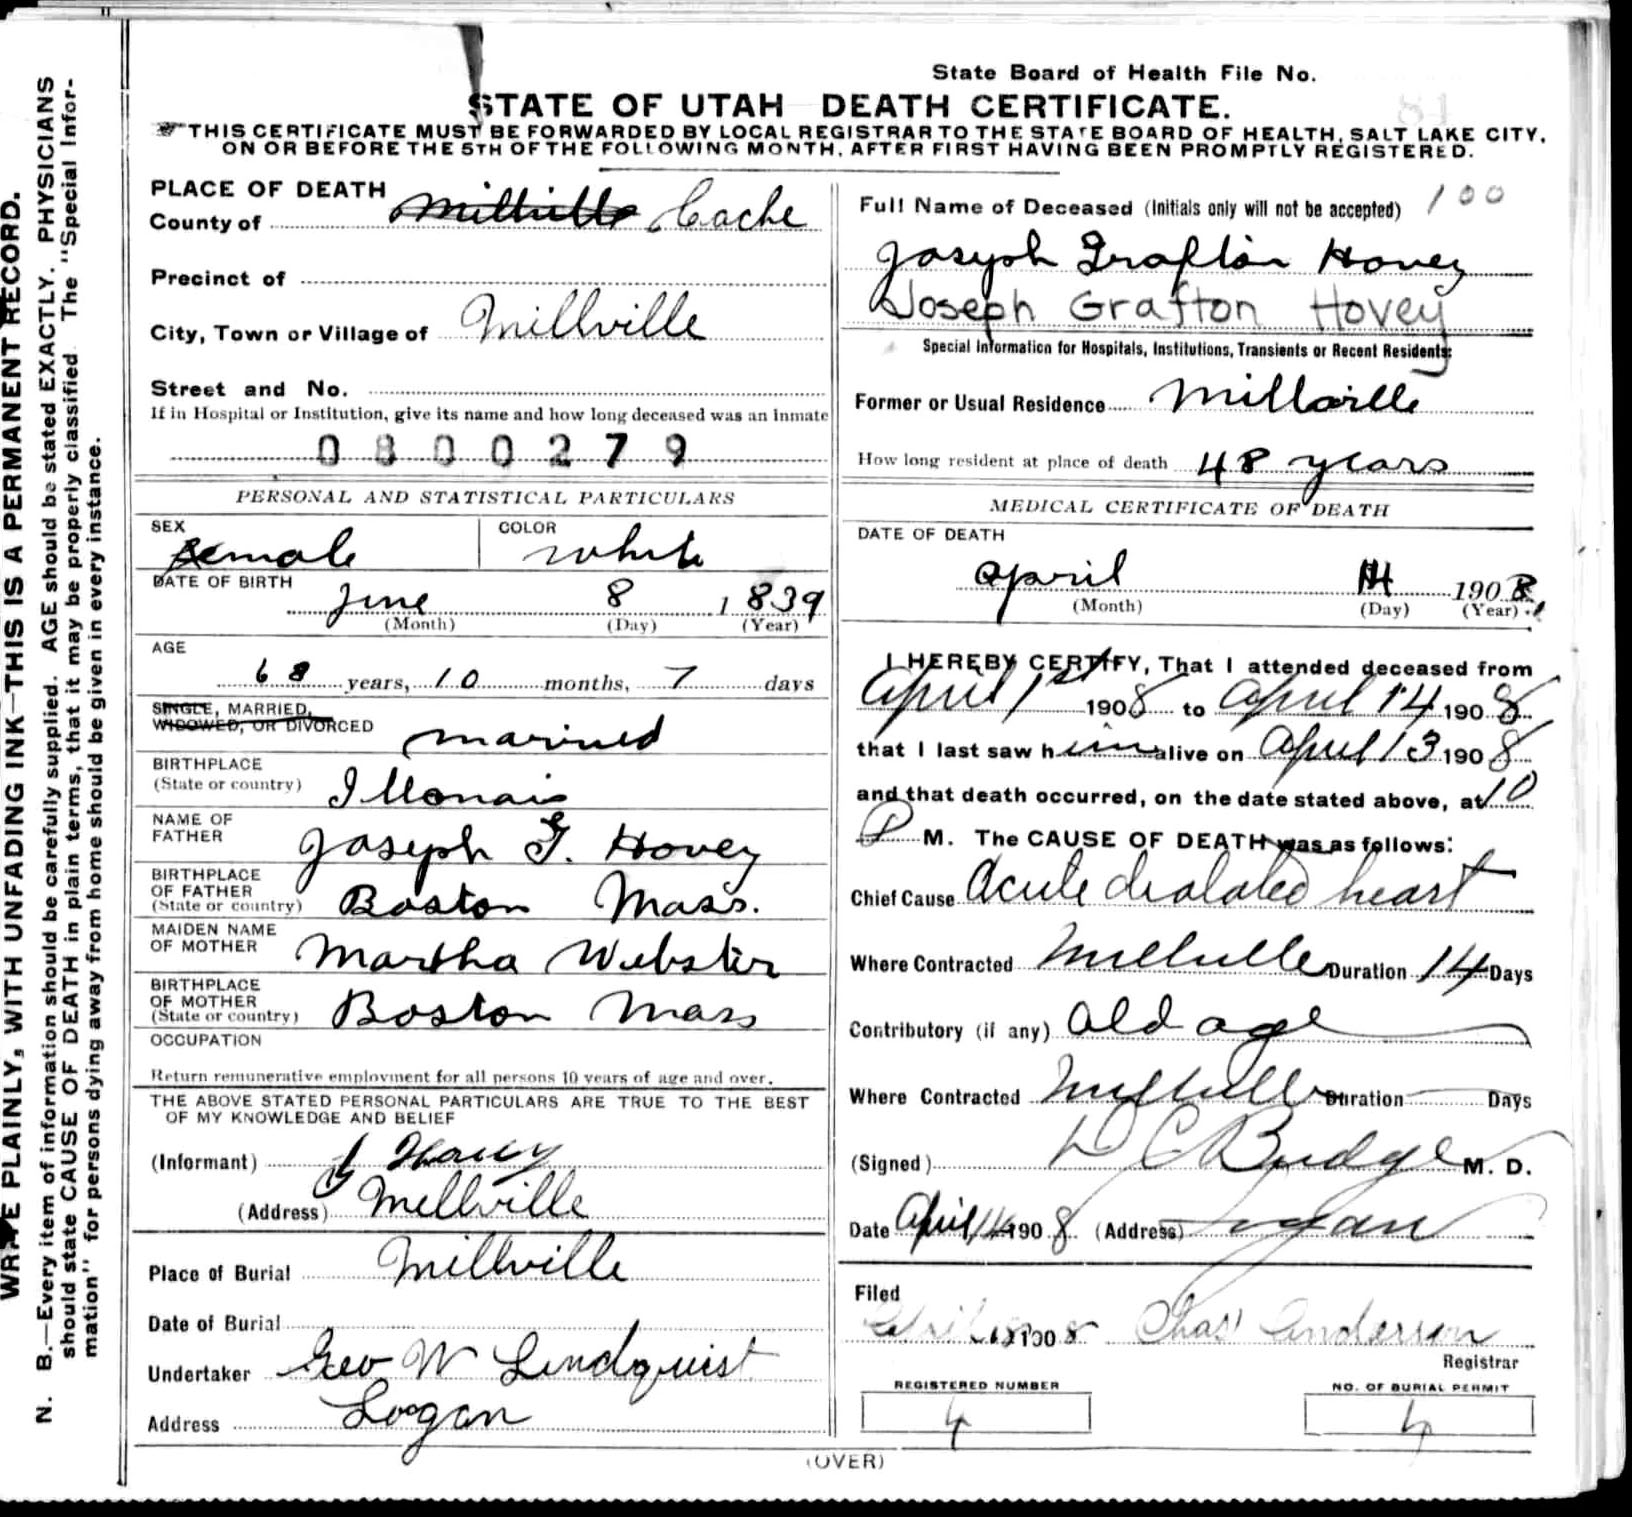 State Board of Health File No.
STATE OF UTAH DEATH CERTIFICATE.
THIS CERTIFICATE MUST BE FORWARDED BY LOCAL REGISTRAR TO THE STATE BOARD OF HEALTH, SALT LAKE CITY,
ON OR BEFORE THE 5TH OF THE FOLLOWING MONTH, AFTER FIRST HAVING BEEN PROMPTLY REGISTERED.
WRITE PLAINLY, WITH UNFADING INK—THIS IS A PERMANENT RECORD.
N. B.—Every item of information should be carefully supplied. AGE should be stated EXACTLY. PHYSICIANS
should state CAUSE OF DEATH in plain terms, that it may be properly classified. The "Special Infor-
mation" for persons dying away from home should be given in every instance.
PLACE OF DEATH
County of Millville Cache
Precinct of
City, Town or Village of Millville
Street and No.
If in Hospital or Institution, give its name and how long deceased was an inmate
0800279
PERSONAL AND STATISTICAL PARTICULARS
SEX COLOR
Female white
DATE OF BIRTH
June 8 1839
(Month) (Day) (Year)
AGE
68 years, 10 months, 7 days
SINGLE, MARRIED,
WIDOWED, OR DIVORCED married
BIRTHPLACE
(State or country) Illonais
NAME OF
FATHER Joseph G. Hovey
BIRTHPLACE
OF FATHER
(State or country) Boston Mass.
MAIDEN NAME
OF MOTHER Martha Webster
BIRTHPLACE
OF MOTHER
(State or country) Boston Mass
OCCUPATION
Return remunerative employment for all persons 10 years of age and over.
THE ABOVE STATED PERSONAL PARTICULARS ARE TRUE TO THE BEST
OF MY KNOWLEDGE AND BELIEF
(Informant) Hovey
(Address) Millville
Place of Burial Millville
Date of Burial
Undertaker Geo W Lindquist
Address Logan
Full Name of Deceased (Initials only will not be accepted) 100
Joseph Grafton Hovey
Joseph Grafton Hovey
Special Information for Hospitals, Institutions, Transients or Recent Residents:
Former or Usual Residence Millville
How long resident at place of death 48 years
MEDICAL CERTIFICATE OF DEATH
DATE OF DEATH
April 14 1908
(Month) (Day) (Year)
I HEREBY CERTIFY, That I attended deceased from
April 1st 1908 to April 14 1908
that I last saw him alive on April 13 1908
and that death occurred, on the date stated above, at 10
P M. The CAUSE OF DEATH was as follows:
Chief Cause Acute dialated heart
Where Contracted Millville Duration 14 Days
Contributory (if any) Old age
Where Contracted Millville Duration Days
(Signed) D C Budge M. D.
Date April 14 1908 (Address) Logan
Filed
1908 Chas Anderson
Registrar
REGISTERED NUMBER NO. OF BURIAL PERMIT
4 4
(OVER)